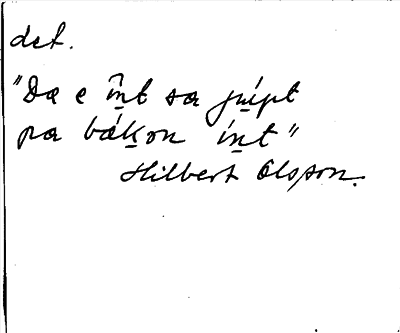 det.
"Dæ e înt sa júipt
pa bákon int"
Hilbert Olsson.